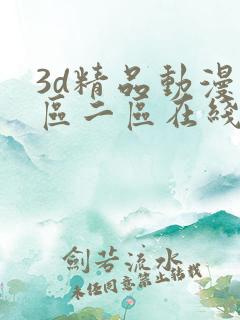 3d精品動漫
區二區在綫
劍若流水
未經同意禁止轉載